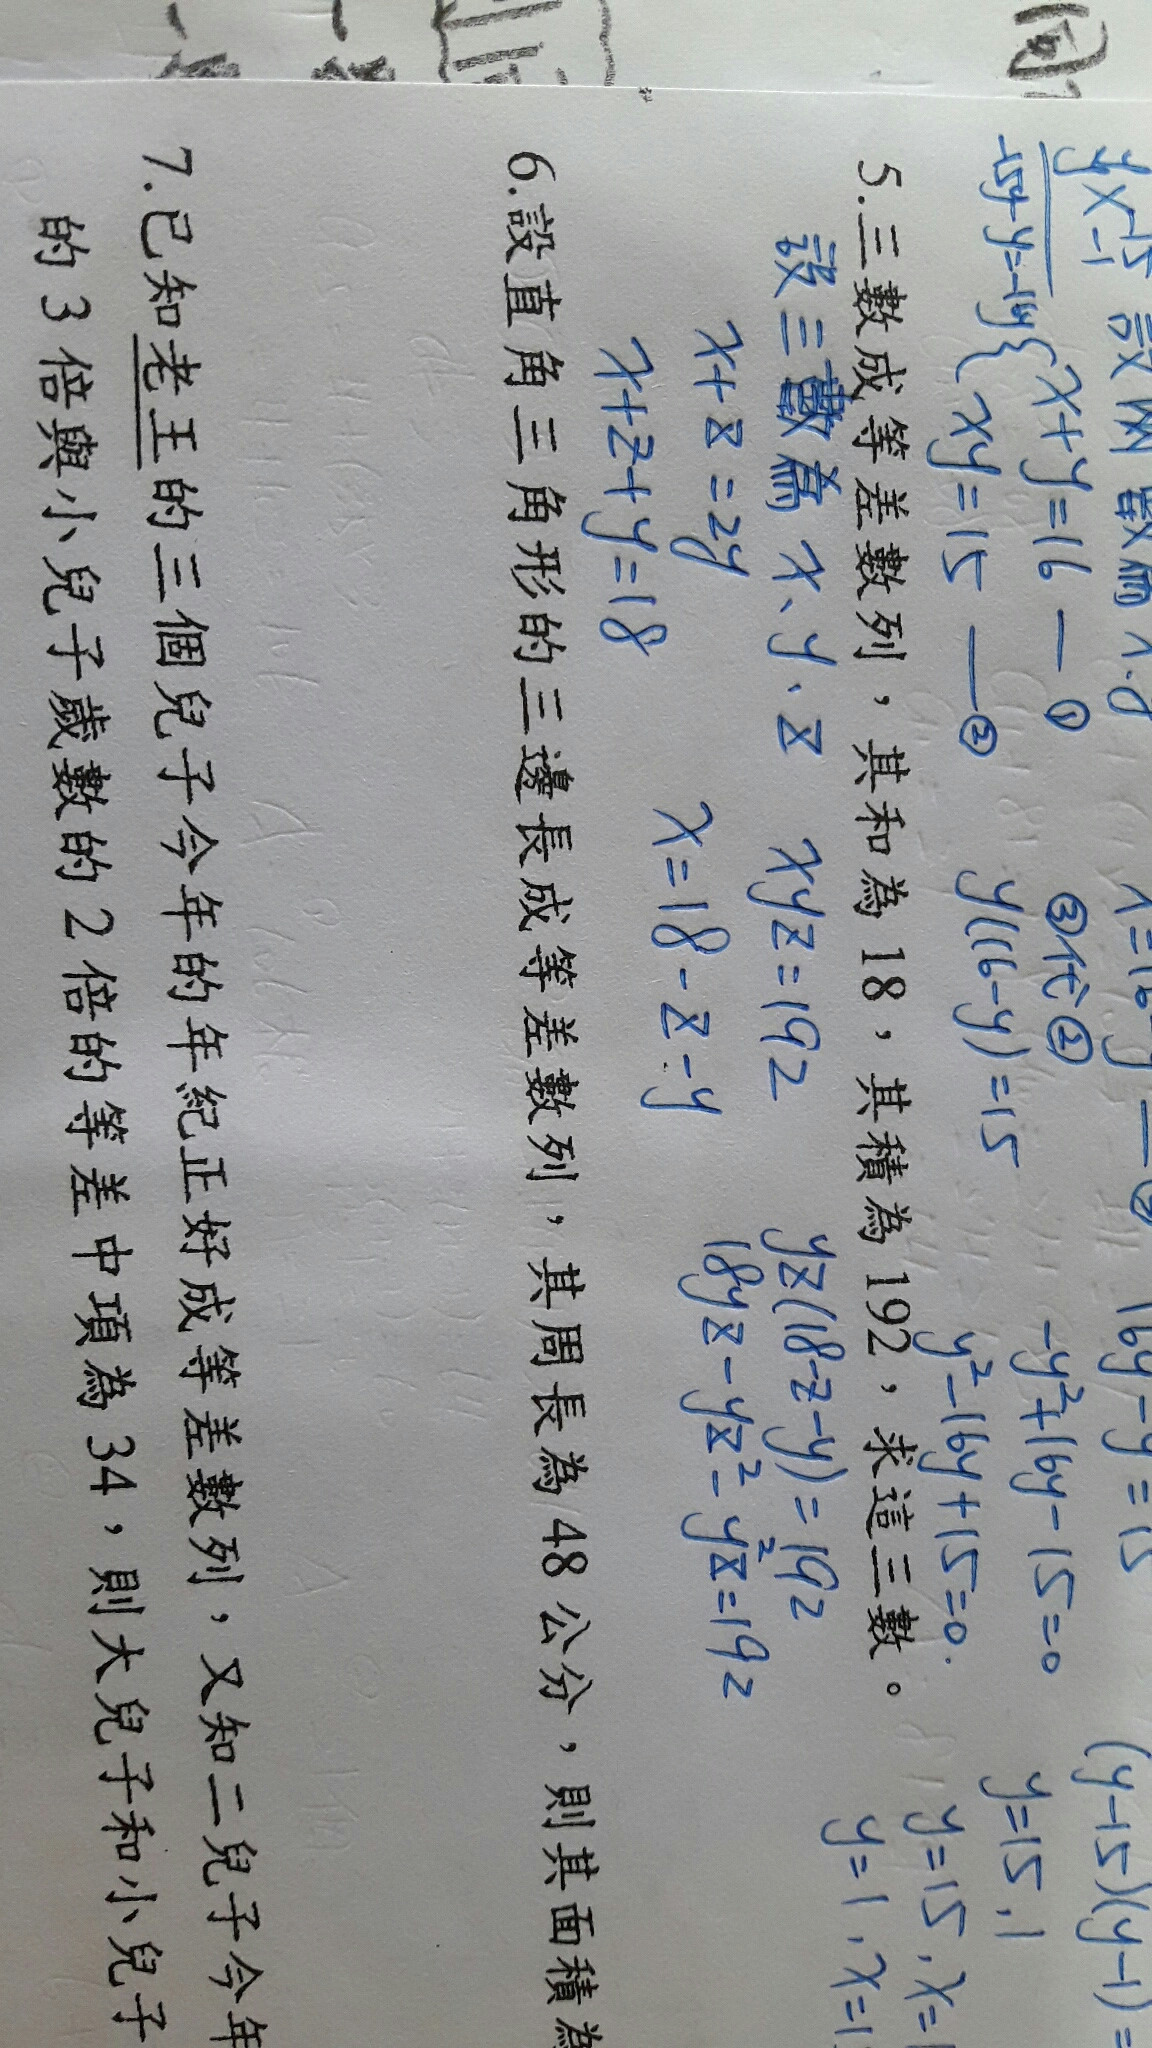 x+y=16 — ①
xy=15 — ②
③代②
y(16-y)=15
16y-y²=15
-y²+16y-15=0
y²-16y+15=0.
(y-15)(y-1)=
y=15,1
y=15,x=1
y=1,x=1
5.三數成等差數列,其和為18,其積為192,求這三數。
設三數為x、y、z
x+z=2y
x+z+y=18
xyz=192
x=18-z-y
yz(18-z-y)=192
18yz-yz²-y²z=192
6.設直角三角形的三邊長成等差數列,其周長為48公分,則其面積為
7.已知老王的三個兒子今年的年紀正好成等差數列,又知二兒子今年
的3倍與小兒子歲數的2倍的等差中項為34,則大兒子和小兒子